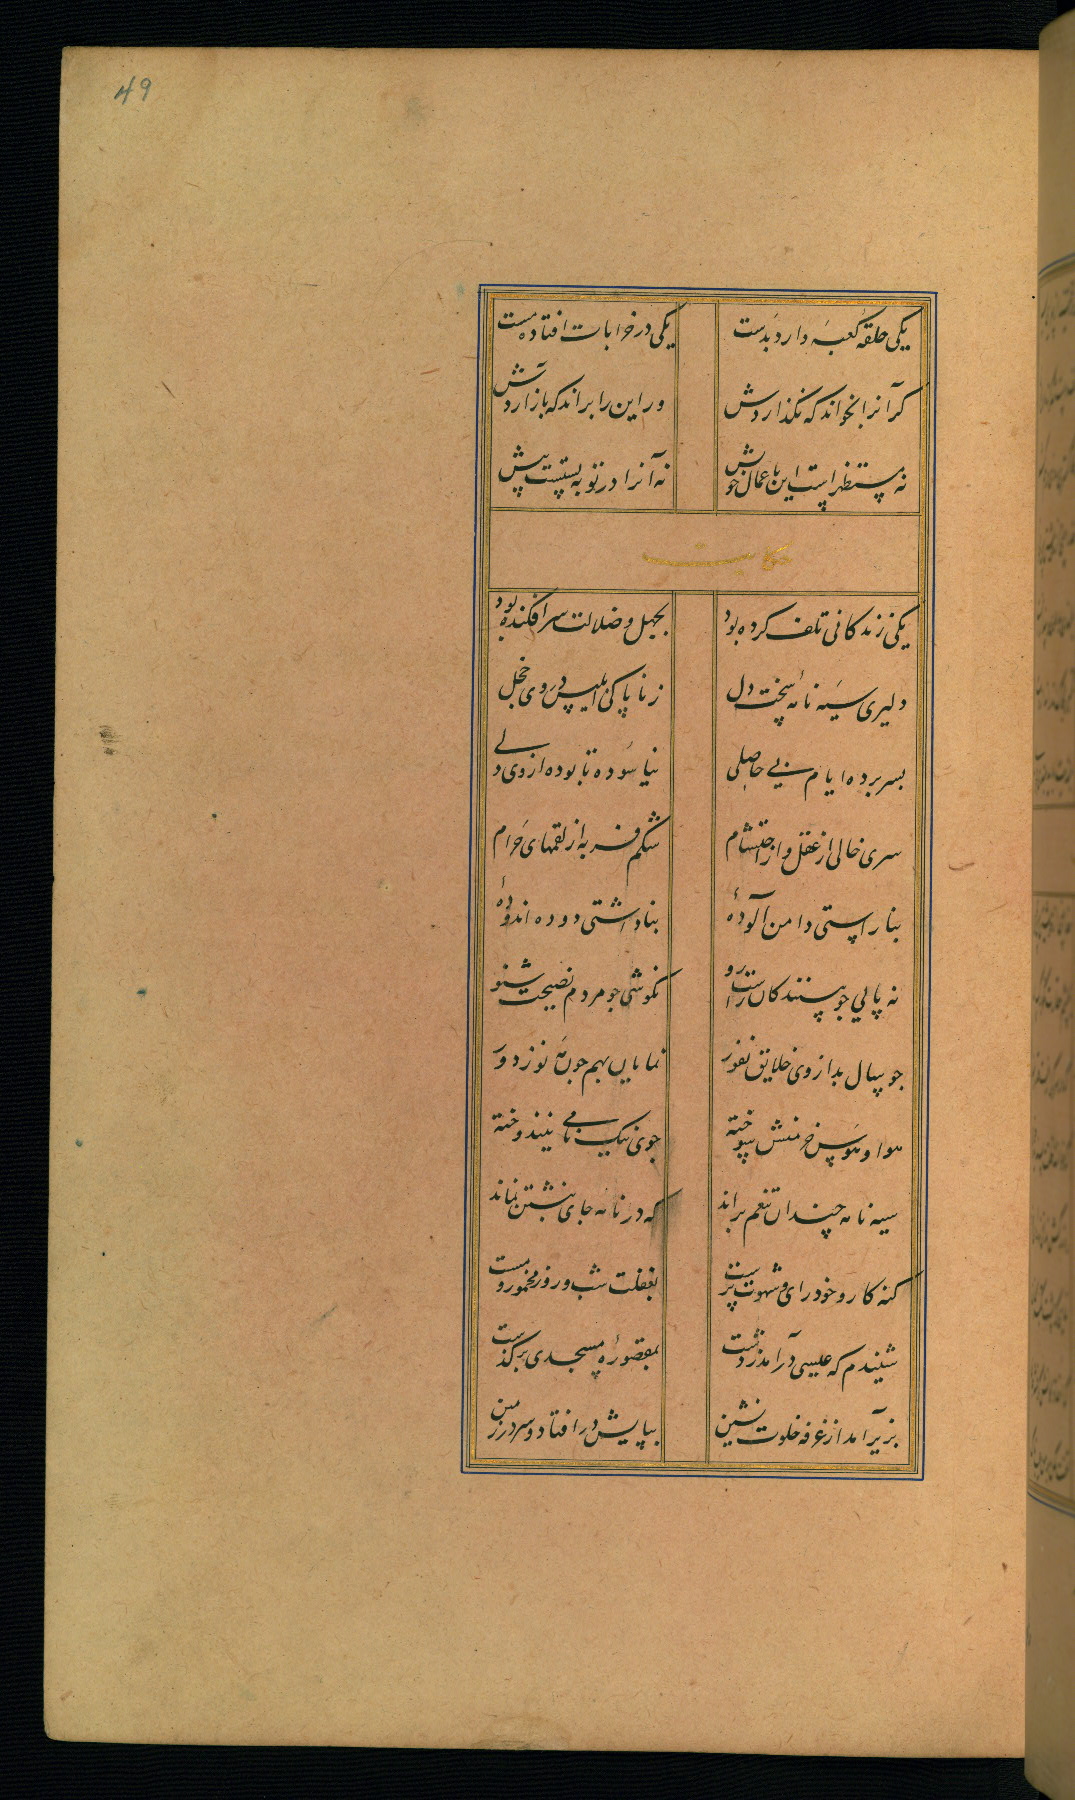 49
یکی حلقهٔ کعبه دارد بدست یکی در خرابات افتاده مست
کر آنرا بخواند که نگذاردش ور این را براند که باز آردش
نه مستظهراست این باعمال خویش نه آنرا در توبه بستست پیش
حکایت
یکی زندکانی تلف کرده بود بجهل و ضلالت سر افکنده بود
دلیری سیه نامهٔ سخت دل ز ناپاکی ابلیس در وی خجل
بسر برده ایام بی حاصلی نیاسوده تا بوده از وی دلی
سری خالی از عقل و از احتشام شکم فربه از لقمهای حرام
بناراستی دامن آلودهٔ بناداشتی دوده اندودهٔ
نه پایی جو بینندکان راست رو نه کوشی جو مردم نصیحت شنو
جو سال بد از وی خلایق نفور نمایان بهم جون مه نو ز دور
هوا و هوس خرمنش سوخته جوی نیک نامی نیندوخته
سیه نامه چندان تنعم براند که در نامه جای نبشتن نماند
کنه کار و خود رای و شهوت پرست بغفلت شب و روز مخمور و مست
شنیدم که عیسی در آمد ز دشت بمقصورهٔ مسجدی بر کذشت
بزیر آمد از غرفه خلوت نشین بپایش در افتاد و سر در زمین